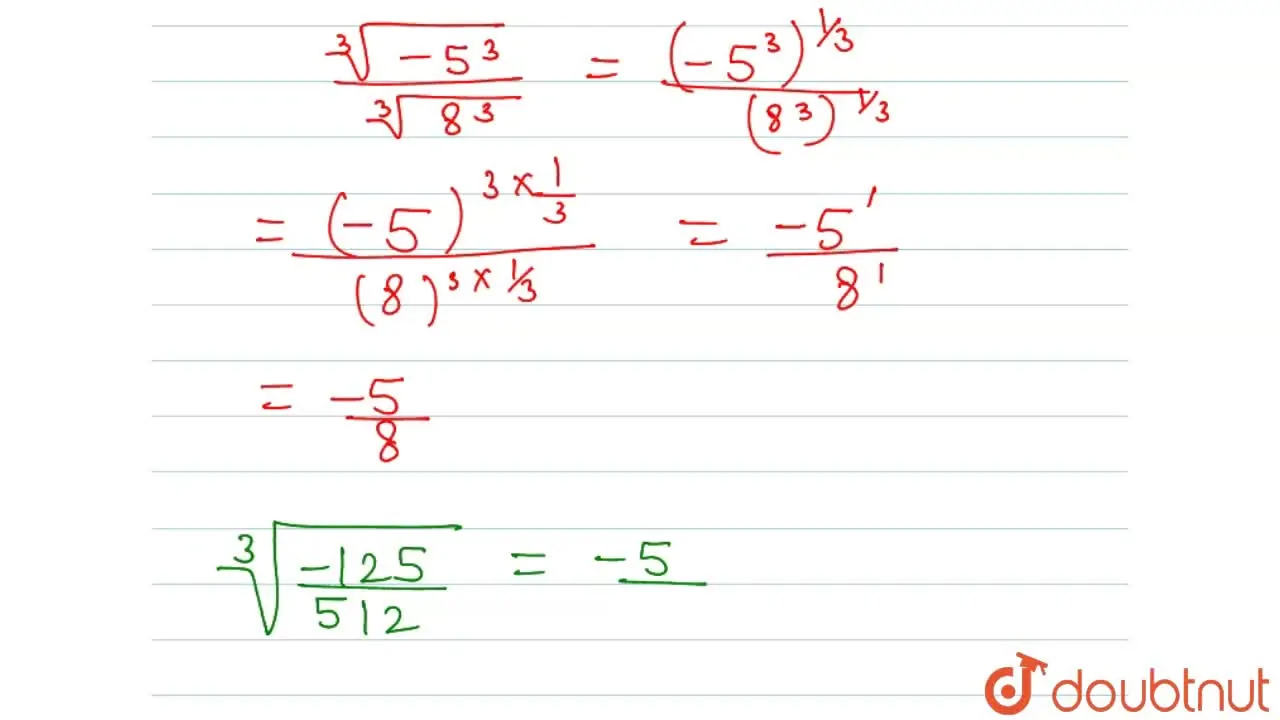 ∛(-5³) / ∛(8³) = (-5³)^(1/3) / (8³)^(1/3)
= (-5)^(3 × 1/3) / (8)^(3 × 1/3) = -5¹ / 8¹
= -5 / 8
∛(-125 / 512) = -5 /
doubtnut